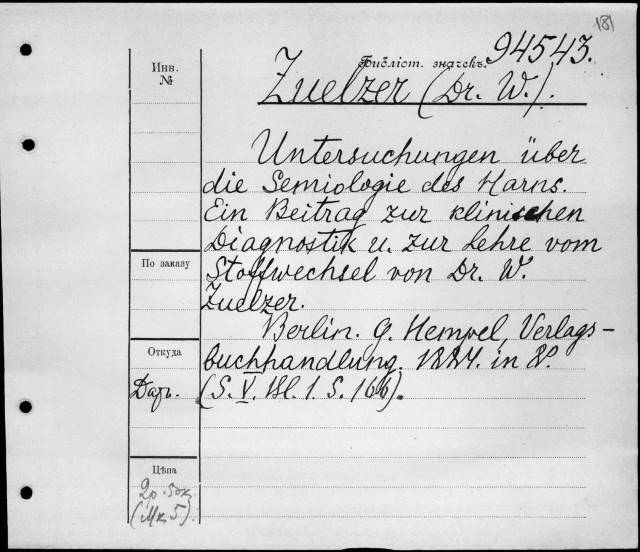 181
Инв.
№
Библіот. значекъ.
94543.
Zuelzer (Dr. W.).
Untersuchungen über
die Semiologie des Harns.
Ein Beitrag zur klinischen
Diagnostik u. zur Lehre vom
По заказу
Stoffwechsel von Dr. W.
Zuelzer.
Berlin. G. Hempel, Verlags-
Откуда
buchhandlung. 1884. in 8º.
Даръ.
(S. V. Bl. 1. S. 166).
Цѣна
2р. 50к.
(Mk 5).